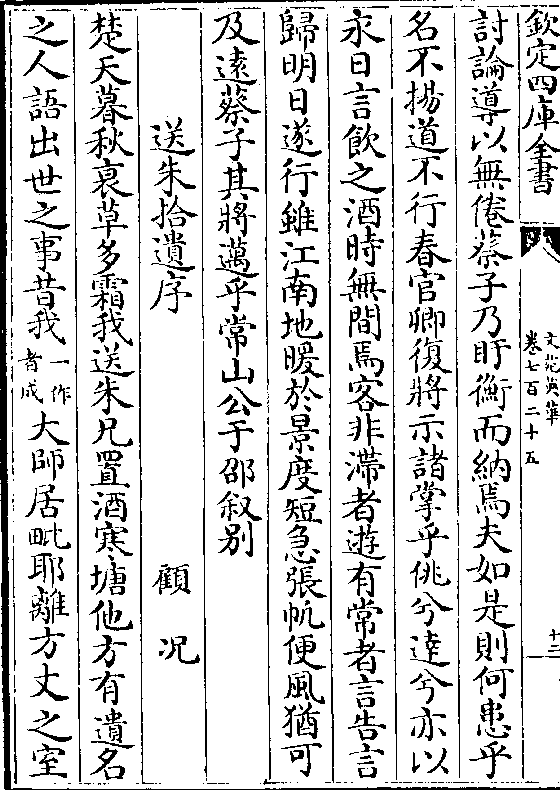 欽定四庫全書
文苑英華
卷七百二十五
十二
討論導以無倦蔡子乃盱衡而納焉夫如是則何患乎
名不揚道不行春官卿復將示諸掌乎佻兮達兮亦以
永日言飲之酒時無間焉客非滯者遊有常者言告言
歸明日遂行雖江南地暖於景度短急張帆便風猶可
及遠蔡子其將邁乎常山公于邵叙别
送朱拾遺序　顧况
楚天暮秋衰草多霜我送朱兄置酒寒塘他方有遺名
之人語出世之事昔我一作者成大師居毗耶離方丈之室